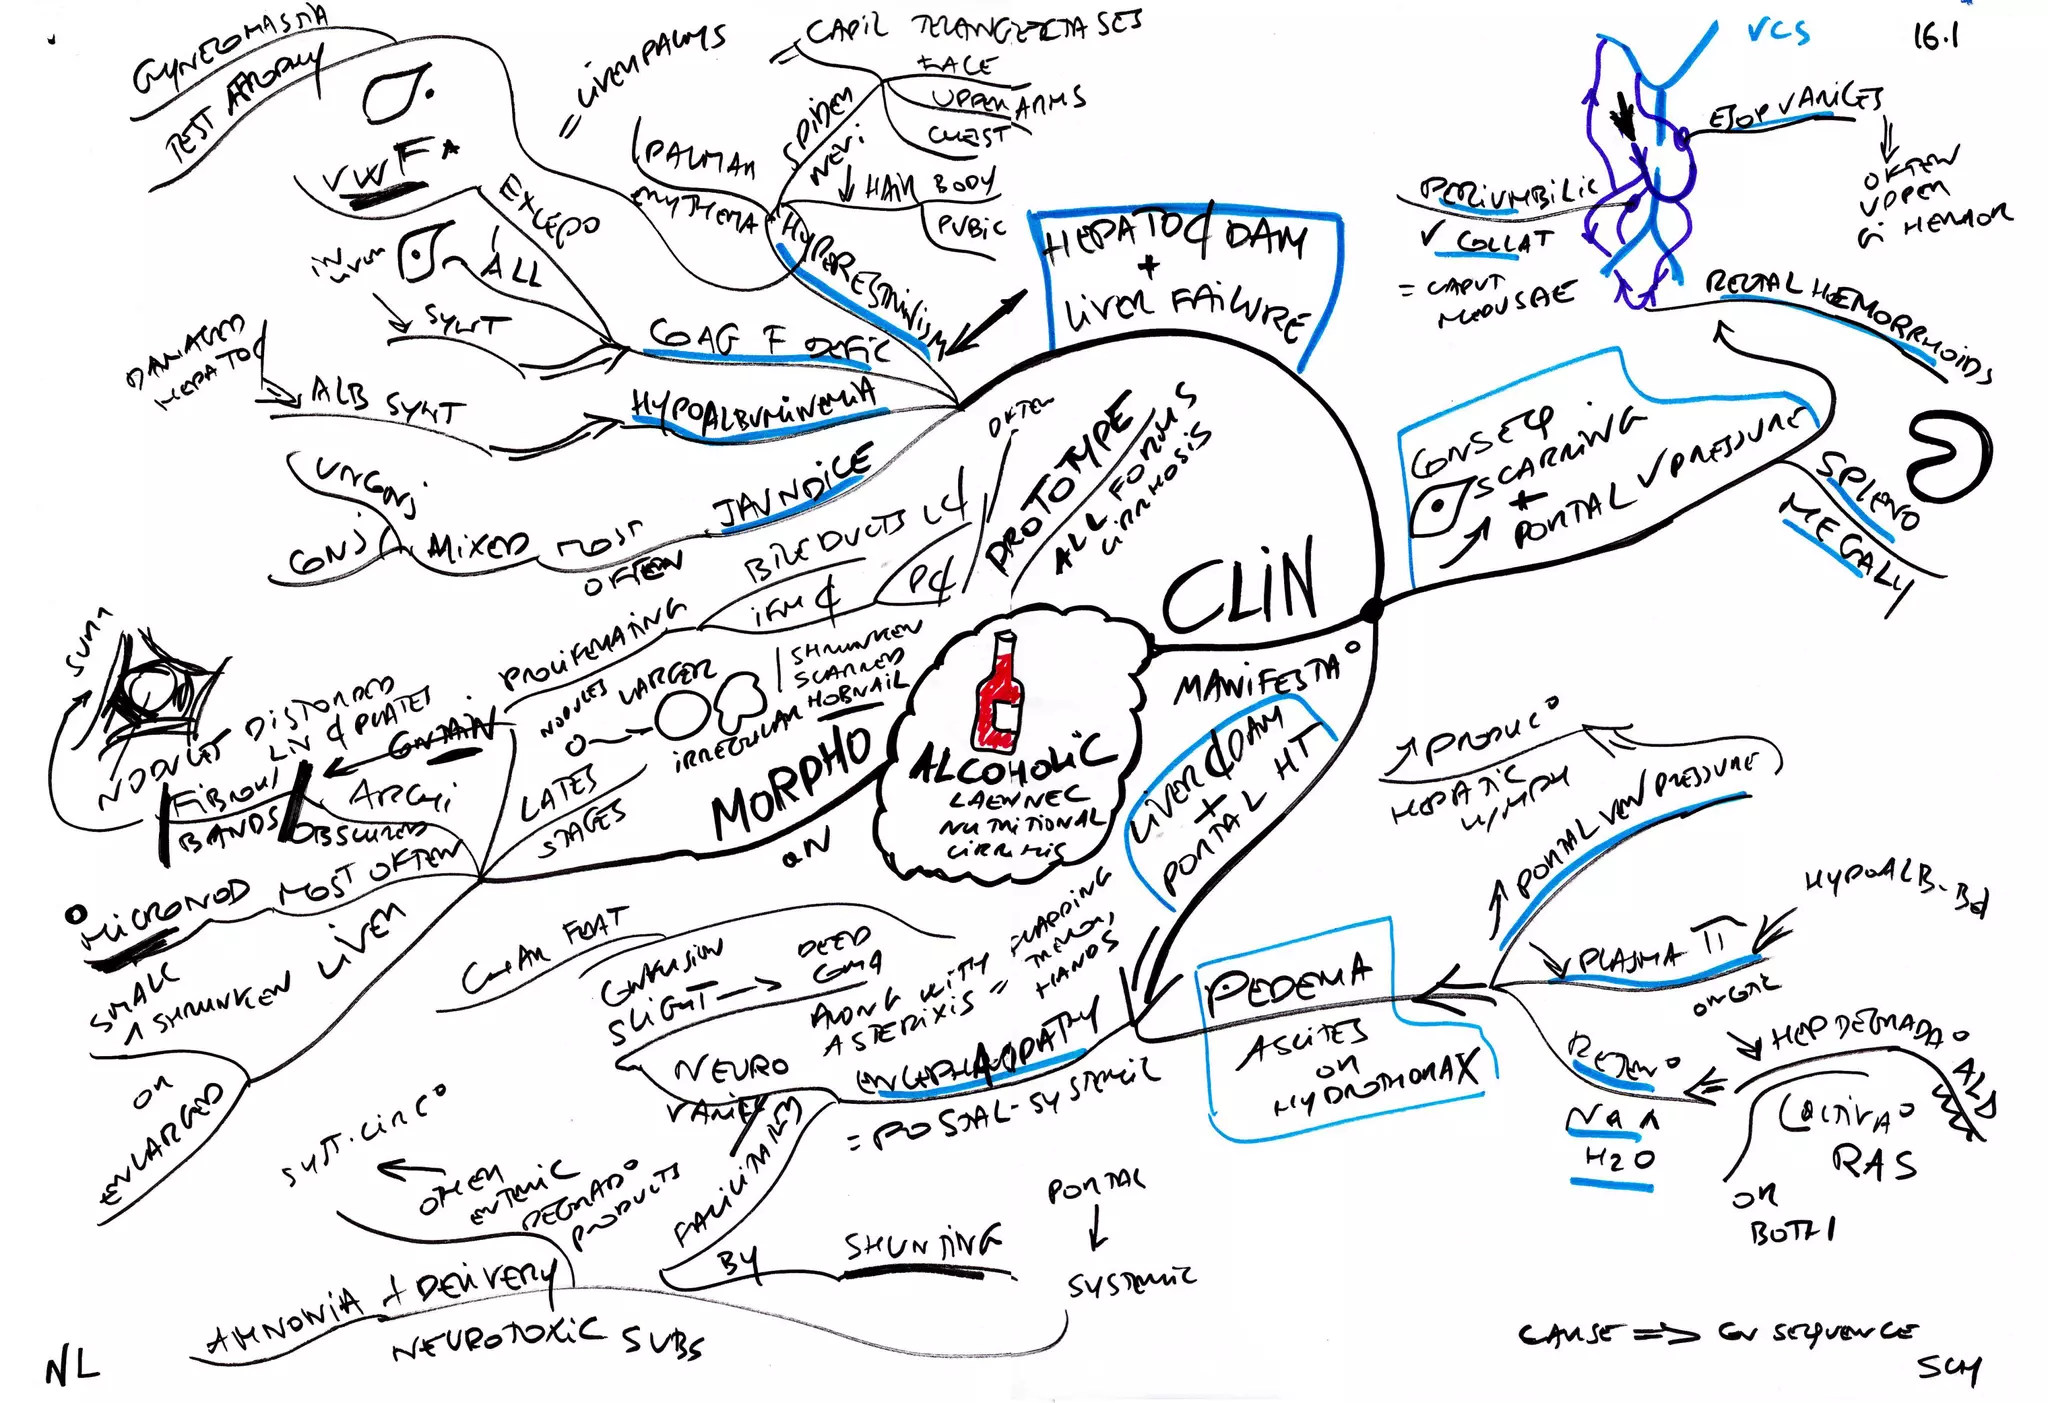 16.1
GYNECOMASTIA
TEST ATROPHY
= LIVER PALMS
= CAPIL TELANGIECTASES
FACE
UPPER ARMS
CHEST
SPIDER
NEVI
PALMAR
ERYTHEMA
↓ HAIR BODY
PUBIC
HYPERESTRINISM
VWF
EXCEPO
IN
LIVER
ALL
↓ SYNT
COAG F DEFIC
DAMAGED
HEPATOC
ALB SYNT
HYPOALBUMINEMIA
UNCONJ
CONJ
MIXED
MOST
OFTEN
JAUNDICE
HEPATOC DAM
+
LIVER FAILURE
VCS
ESOP VARICES
OFTEN
UPPER
GI HEMOR
PERIUMBILIC
V COLLAT
= CAPUT
MEDUSAE
RECTAL HEMORRHOIDS
CONSEQ
SCARRING
+
↗ PORTAL V PRESSURE
SPLENO
MEGALY
CLIN
MANIFESTA°
PROTOTYPE
ALL FORMS
CIRRHOSIS
OFTEN
BILE DUCTS
PROLIFERATING
NODULES LARGER
SHRUNKEN
SCARRED
HOBNAIL
IRREGULAR
LATES
STAGES
MORPHO
ALCOHOLIC
LAENNEC
NUTRITIONAL
NODULES
DISTORTED
FIBROUS
BANDS
ARCHI
OBSCURED
MICRONOD
MOST OFTEN
SMALL
SHRUNKEN LIVER
OR
ENLARGED
LIVER DAM
+
PORTAL HT
↗ PRODUC°
HEPATIC
LYMPH
↗ PORTAL VEIN PRESSURE
HYPOALB
↘ PLASMA
RETEN°
Na
H2O
↘ HEP DEGRADA°
ALD
ACTIVA°
RAS
OR
BOTH
OEDEMA
ASCITES
OR
HYDROTHORAX
ENCEPHALOPATHY
= POSTAL-SYSTEMIC
ALONG WITH
ASTERIXIS =
FLAPPING
TREMOR,
HANDS
CONFUSION
SLIGHT → DEEP
COMA
NEURO
FACILITATED
BY
SHUNTING
PORTAL
↓
SYSTEMIC
SYST. CIRC°
OTHER
ENTERIC
DEGRADO°
PRODUCTS
AMMONIA + DELIVERY
NEUROTOXIC SUBS
NL
CAUSE => CONSEQUENCE
SCH